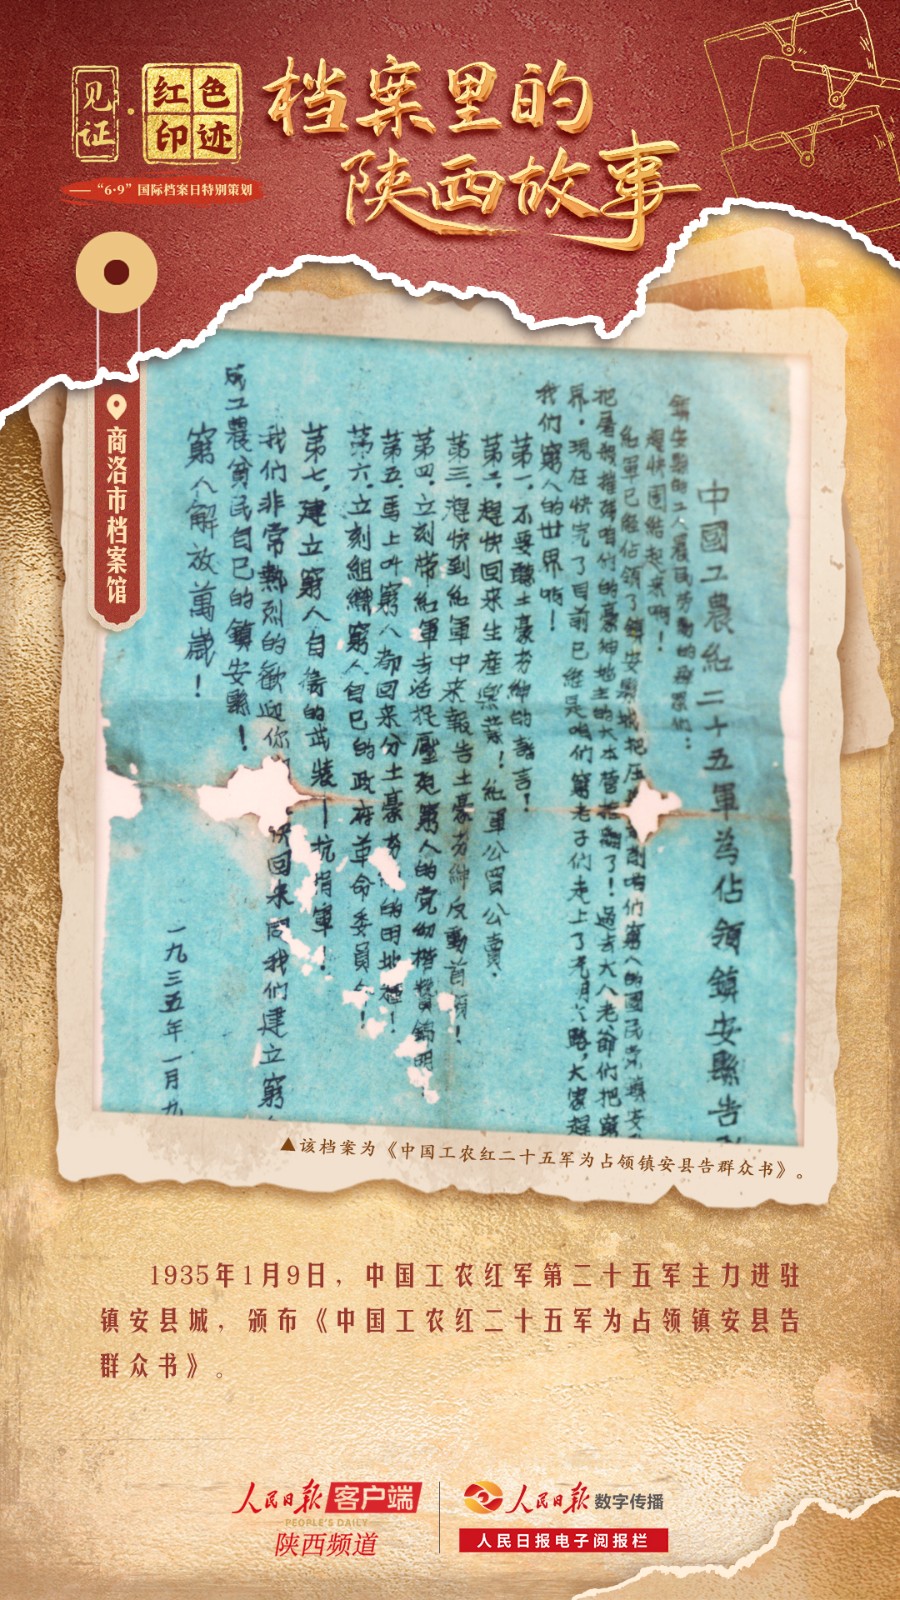 见证·红色印迹
档案里的
陕西故事
——“6·9”国际档案日特别策划
商洛市档案馆
中國工農紅二十五軍為佔領鎮安縣告
趕快團結起來啊！
紅軍已經佔領了鎮安縣城把压
咱们窮人的國民党鎮安
把屠殺摧殘咱们的豪紳地主的大本營搭翻了！過去大人老爺们把窮
界．現在快完了目前已經是咱们窮老子们走上了光月
路，大家趕
我们窮人的世界啦！
第一．不要聽土豪劣紳的謠言！
第二．趕快回來生産樂業！紅軍公買公賣．
第三．得快到紅軍中来報告土豪劣紳反動首領！
第四．立刻帶紅軍去活捉壓廹窮人的党
第五．馬上叫窮人都回来分土豪劣
的田地
！
第六．立刻組織窮人自己的政府革命委員
！
第七．建立窮人自衛的武裝—抗捐軍！
我们非常熱烈的歡迎你
快回来
我们建立窮
成工農貧民自己的鎮安縣！
窮人解放萬歲！
一九三五年一月九
▲该档案为《中国工农红二十五军为占领镇安县告群众书》。
1935年1月9日，中国工农红军第二十五军主力进驻
镇安县城，颁布《中国工农红二十五军为占领镇安县告
群众书》。
人民日报 客户端
PEOPLE'S DAILY
陕西频道
人民日报 数字传播
人民日报电子阅报栏